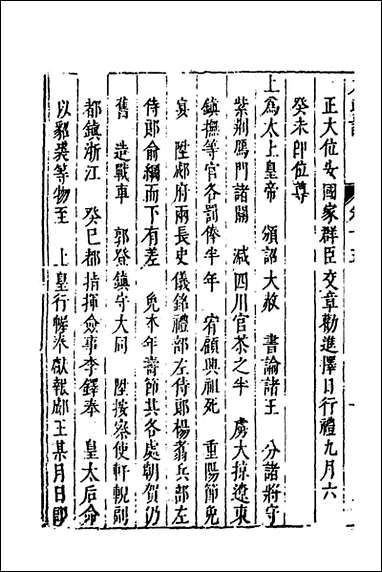 正大位安國家群臣交章勸進擇日行禮九月六
癸未即位尊
上爲太上皇帝 頒詔大赦 書諭諸王 分諸將守
紫荆鴈門諸關 減四川官茶之半 虜大掠遼東
鎮撫等官各罰俸半年 宥顧興祖死 重陽節免
宴 陞郕府兩長史儀銘禮部左侍郎楊翥兵部左
侍郎俞綱而下有差 免来年壽節其各處朝賀仍
舊 造戰車 郭登鎮守大同 陞按察使軒輗副
都鎮浙江 癸巳都指揮僉事李鐸奉 皇太后命
以貂裘等物至 上皇行幄奉獻報郕王某月日即